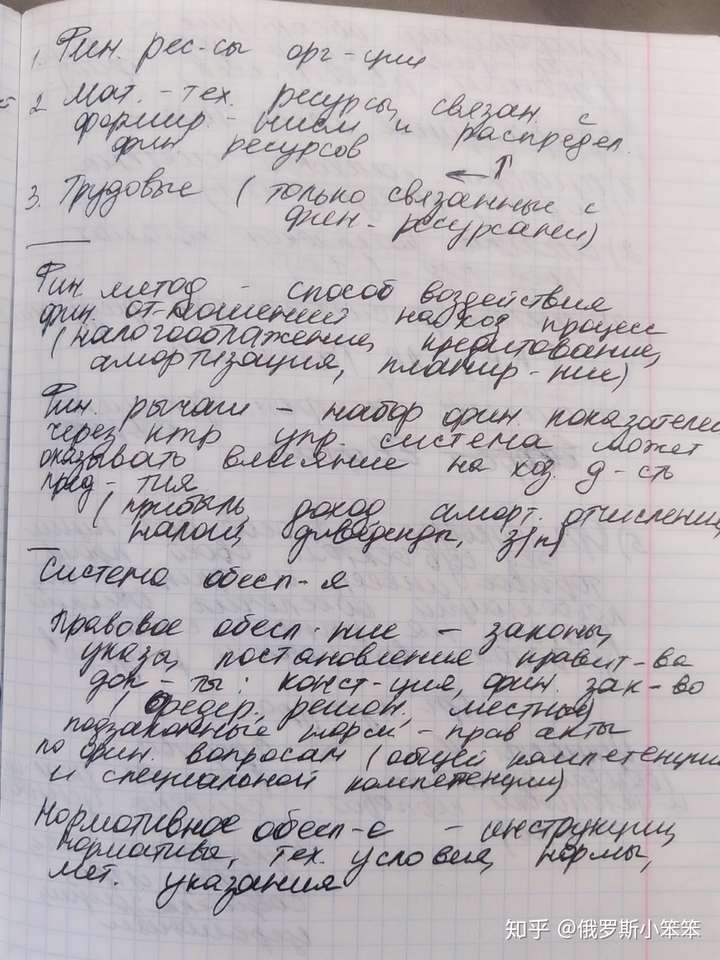 1. Фин. рес-сы орг-ции
2. Мат.-тех. ресурсы, связан. с
формир-нием и распредел.
фин ресурсов
3. Трудовые (только связанные с
фин. ресурсами)
Фин метод - способ воздействия
фин. от-ношений на хоз процесс
(налогооблажение, кредитование,
амортизация, планир-ние)
Фин. рычаги - набор фин. показателей
через ктр упр. система может
оказывать влияние на хоз. д-сть
пред-тия
(прибыль, доход, аморт. отчисления,
налоги, дивиденды, з/п)
Система обесп-я
Правовое обесп-ние - законы,
указы, постановление правит-ва
док-ты: конст-ция, фин. зак-во
(федер., регион., местные)
подзаконные норм-прав акты
по фин. вопросам (общей компетенции
и специальной компетенции)
Нормативное обесп-е - инструкции,
нормативы, тех. условия, нормы,
мет. указания
知乎 @俄罗斯小笨笨